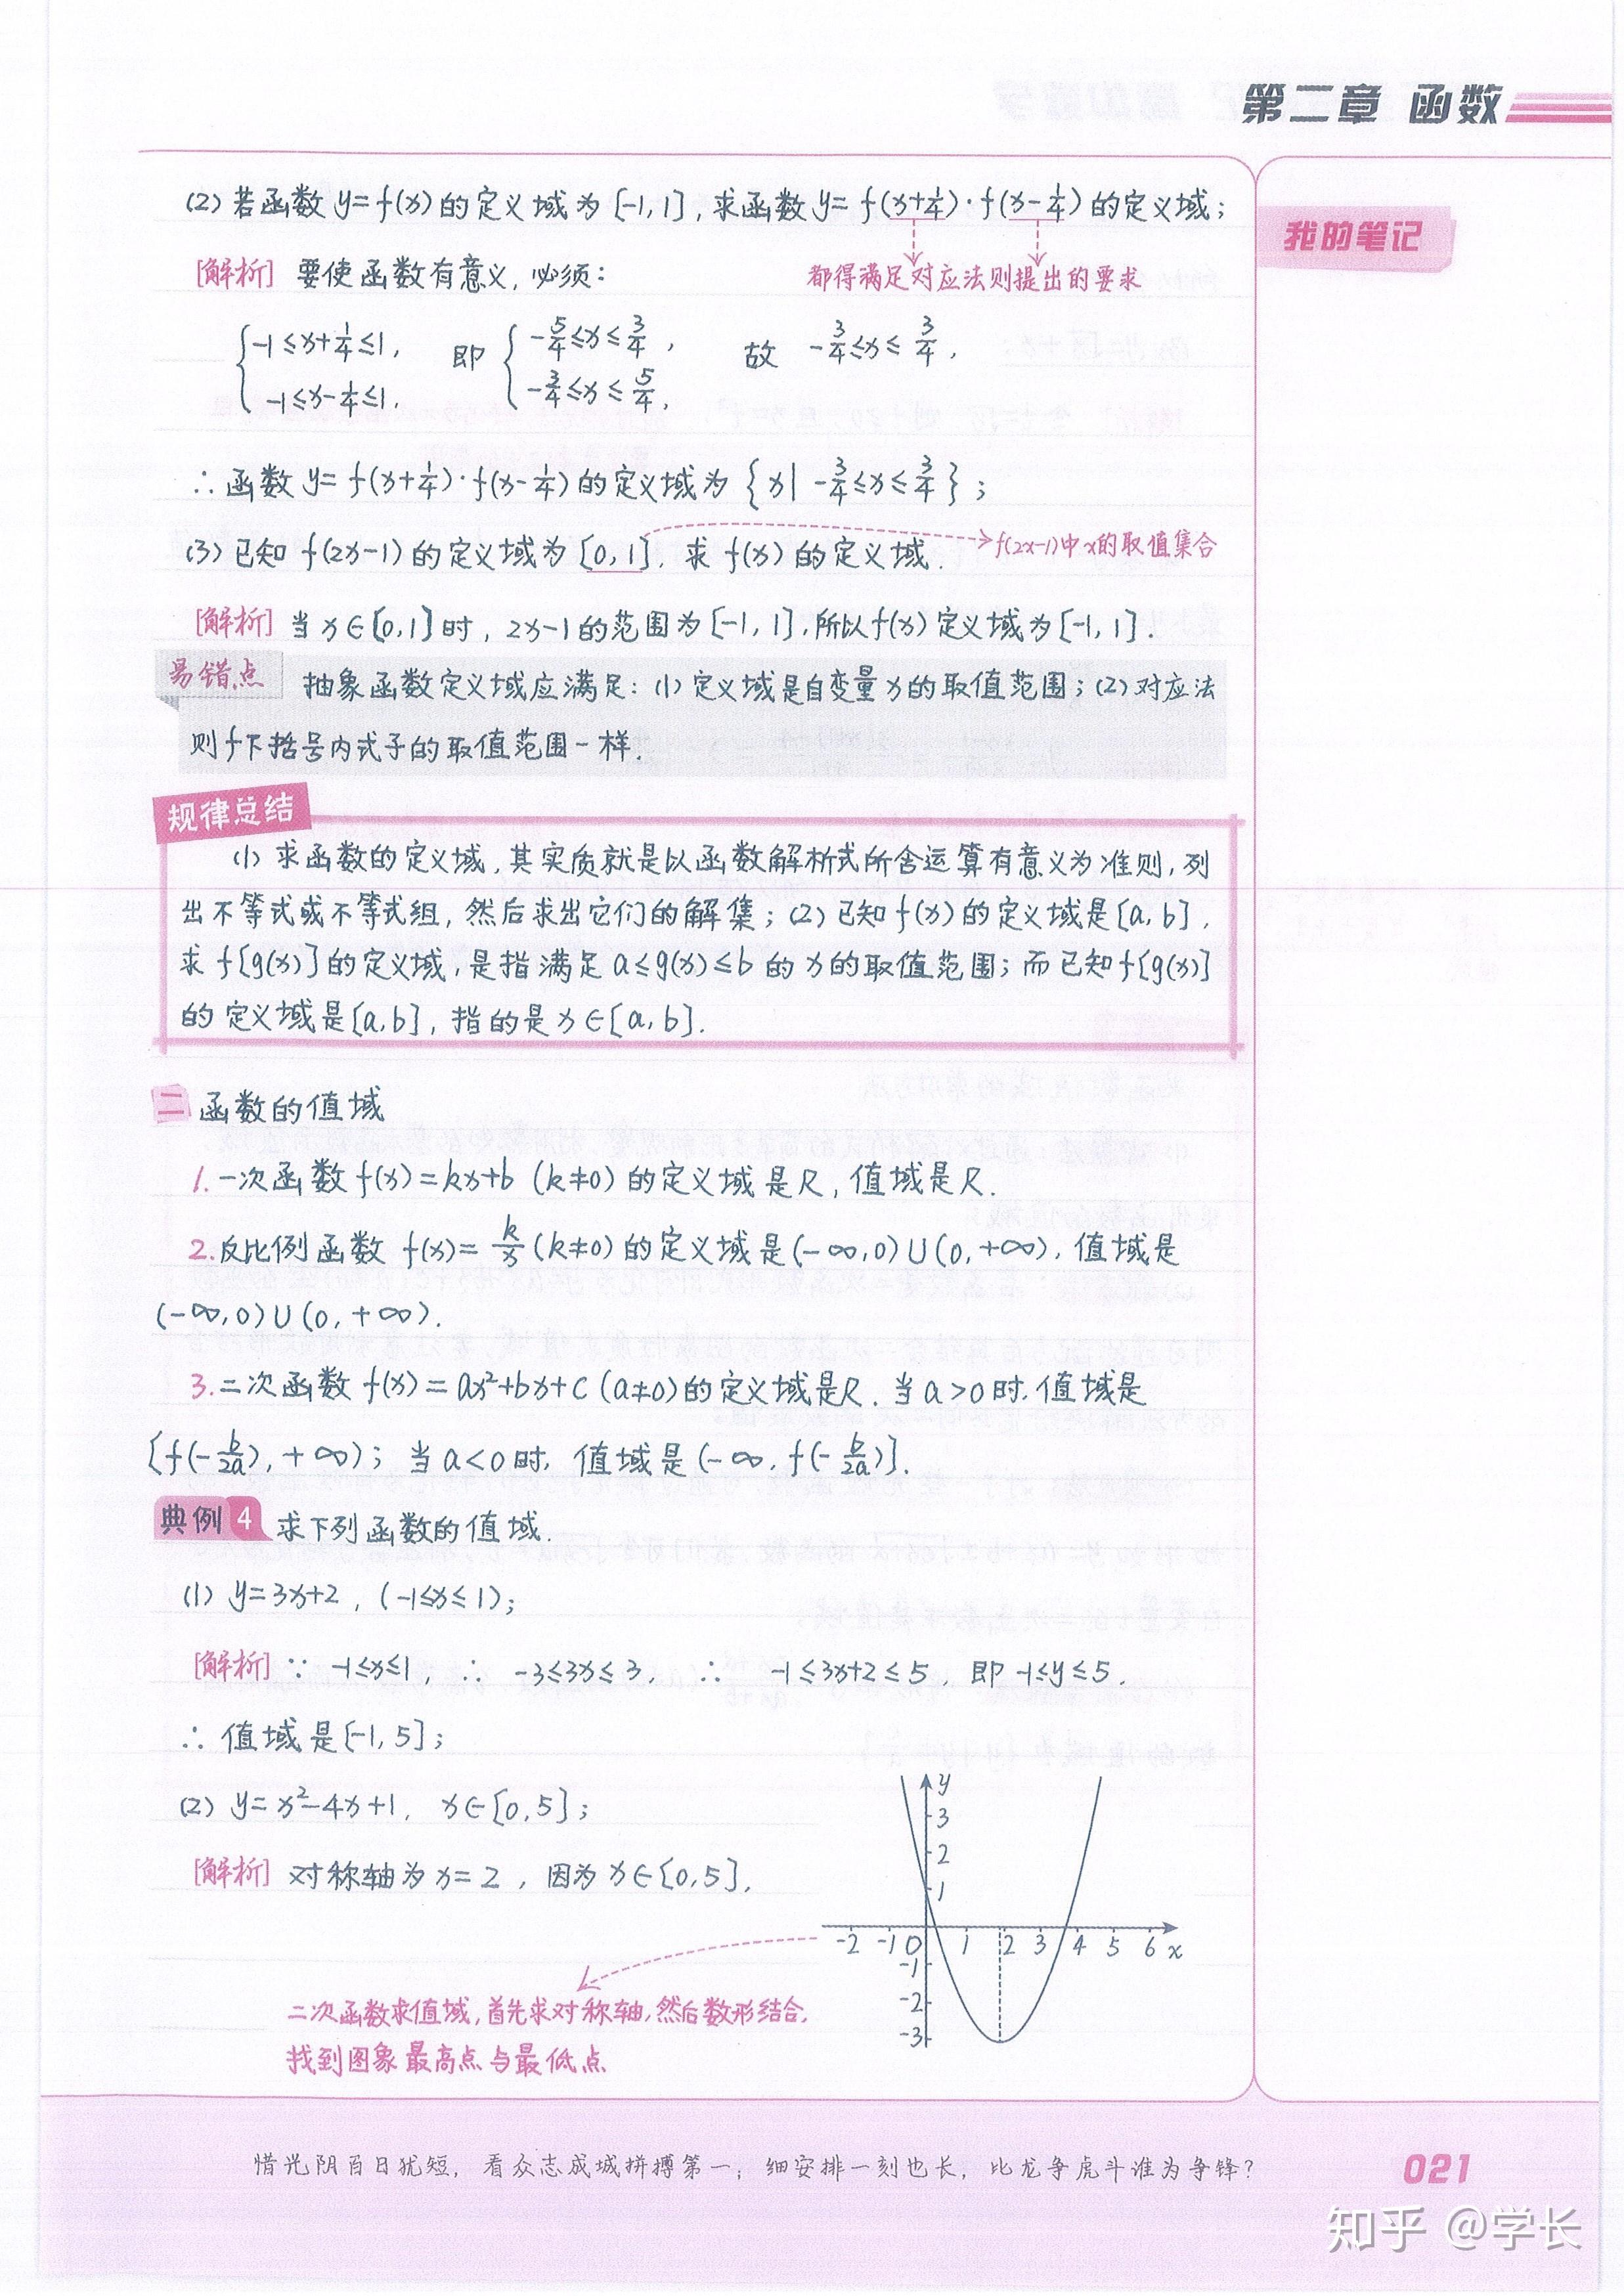 第二章 函数
我的笔记
(2) 若函数 y=f(x) 的定义域为 [-1,1], 求函数 y= f(x+1/4)·f(x-1/4) 的定义域;
[解析] 要使函数有意义, 必须:
都得满足对应法则提出的要求
{-1≤x+1/4≤1, -1≤x-1/4≤1, 即 {-5/4≤x≤3/4, -3/4≤x≤5/4, 故 -3/4≤x≤3/4,
∴ 函数 y= f(x+1/4)·f(x-1/4) 的定义域为 {x| -3/4≤x≤3/4};
(3) 已知 f(2x-1) 的定义域为 [0,1], 求 f(x) 的定义域.
f(2x-1)中x的取值集合
[解析] 当 x∈[0,1] 时, 2x-1 的范围为 [-1,1], 所以 f(x) 定义域为 [-1,1].
易错点 抽象函数定义域应满足: (1) 定义域是自变量 x 的取值范围; (2) 对应法
则 f 下括号内式子的取值范围一样.
规律总结
(1) 求函数的定义域, 其实质就是以函数解析式所含运算有意义为准则, 列
出不等式或不等式组, 然后求出它们的解集; (2) 已知 f(x) 的定义域是 [a,b],
求 f[g(x)] 的定义域, 是指满足 a≤g(x)≤b 的 x 的取值范围; 而已知 f[g(x)]
的定义域是 [a,b], 指的是 x∈[a,b].
二 函数的值域
1. 一次函数 f(x)=kx+b (k≠0) 的定义域是 R, 值域是 R.
2. 反比例函数 f(x)= k/x (k≠0) 的定义域是 (-∞,0)∪(0,+∞), 值域是
(-∞,0)∪(0,+∞).
3. 二次函数 f(x)=ax²+bx+c (a≠0) 的定义域是 R. 当 a>0 时, 值域是
[f(-b/2a), +∞); 当 a<0 时, 值域是 (-∞, f(-b/2a)].
典例 4 求下列函数的值域.
(1) y=3x+2, (-1≤x≤1);
[解析] ∵ -1≤x≤1, ∴ -3≤3x≤3, ∴ -1≤3x+2≤5, 即 -1≤y≤5.
∴ 值域是 [-1,5];
(2) y=x²-4x+1, x∈[0,5];
[解析] 对称轴为 x=2, 因为 x∈[0,5],
y
3
2
1
-2 -1 0 1 2 3 4 5 6 x
-1
-2
-3
二次函数求值域, 首先求对称轴, 然后数形结合,
找到图象最高点与最低点
惜光阴百日犹短, 看众志成城拼搏第一; 细安排一刻也长, 比龙争虎斗谁为争锋?
021
知乎 @学长